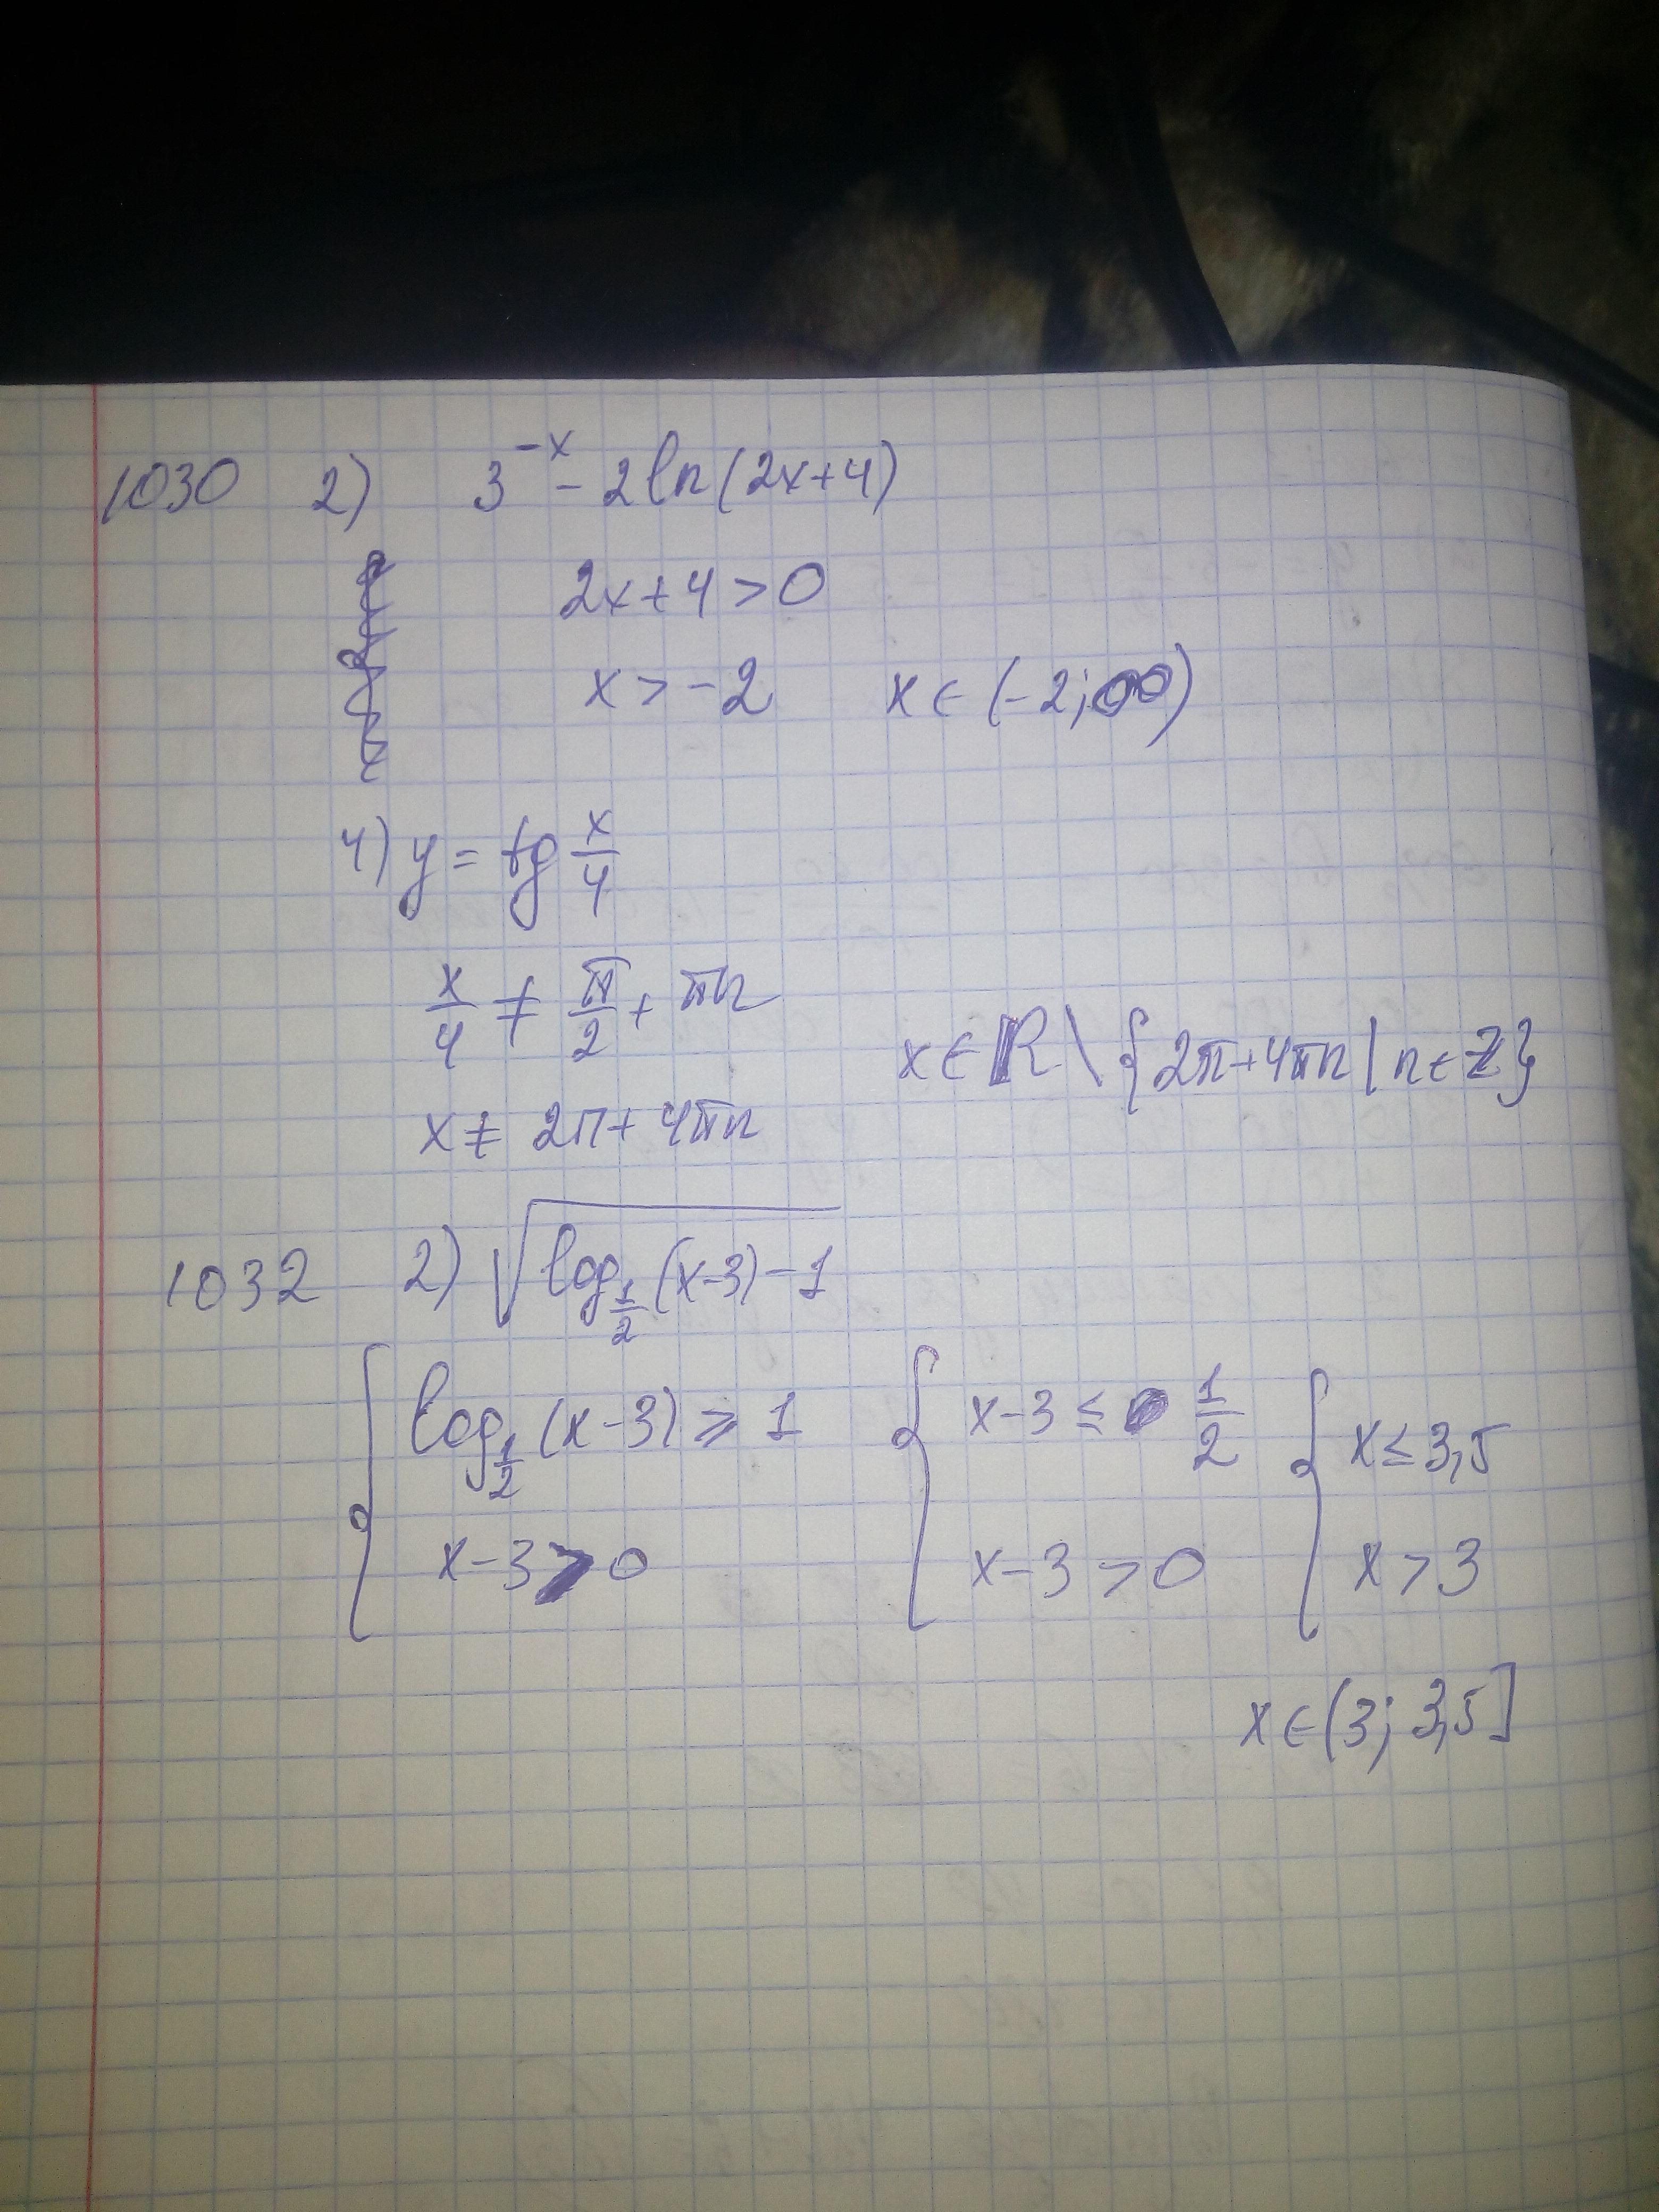 1030 2) 3^{-x} - 2ln(2x+4)
2x+4>0
x>-2 x∈(-2;∞)
4) y = tg x/4
x/4 ≠ π/2 + πn
x∈ℝ \ {2π+4πn | n∈Z}
x ≠ 2π+4πn
1032 2) √(log_{1/2}(x-3)-1)
{ log_{1/2}(x-3) ≥ 1 { x-3 ≤ 1/2 { x ≤ 3,5
x-3>0 x-3>0 x>3
x∈(3; 3,5]